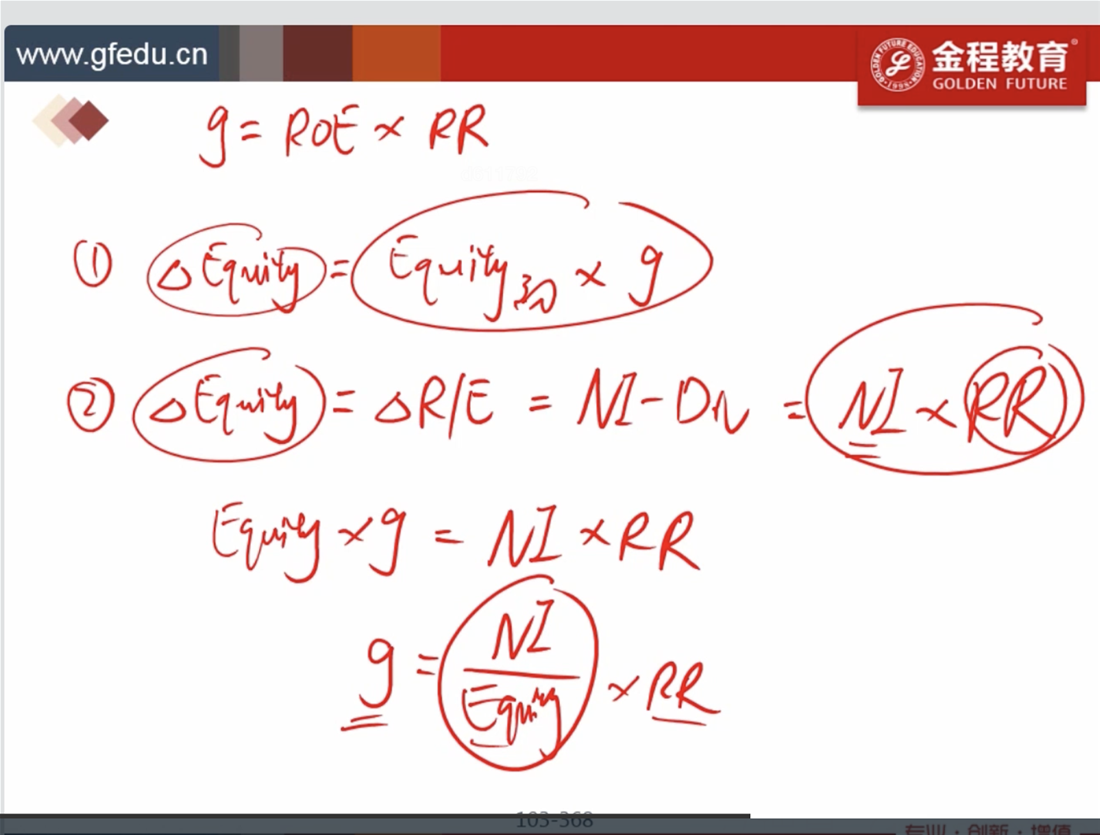 www.gfedu.cn
金程教育®
GOLDEN FUTURE
g = ROE × RR
① △Equity = Equity初 × g
② △Equity = △R/E = NI - Div = NI × RR
Equity × g = NI × RR
g = NI / Equity × RR
103-368
专业·创新·增值